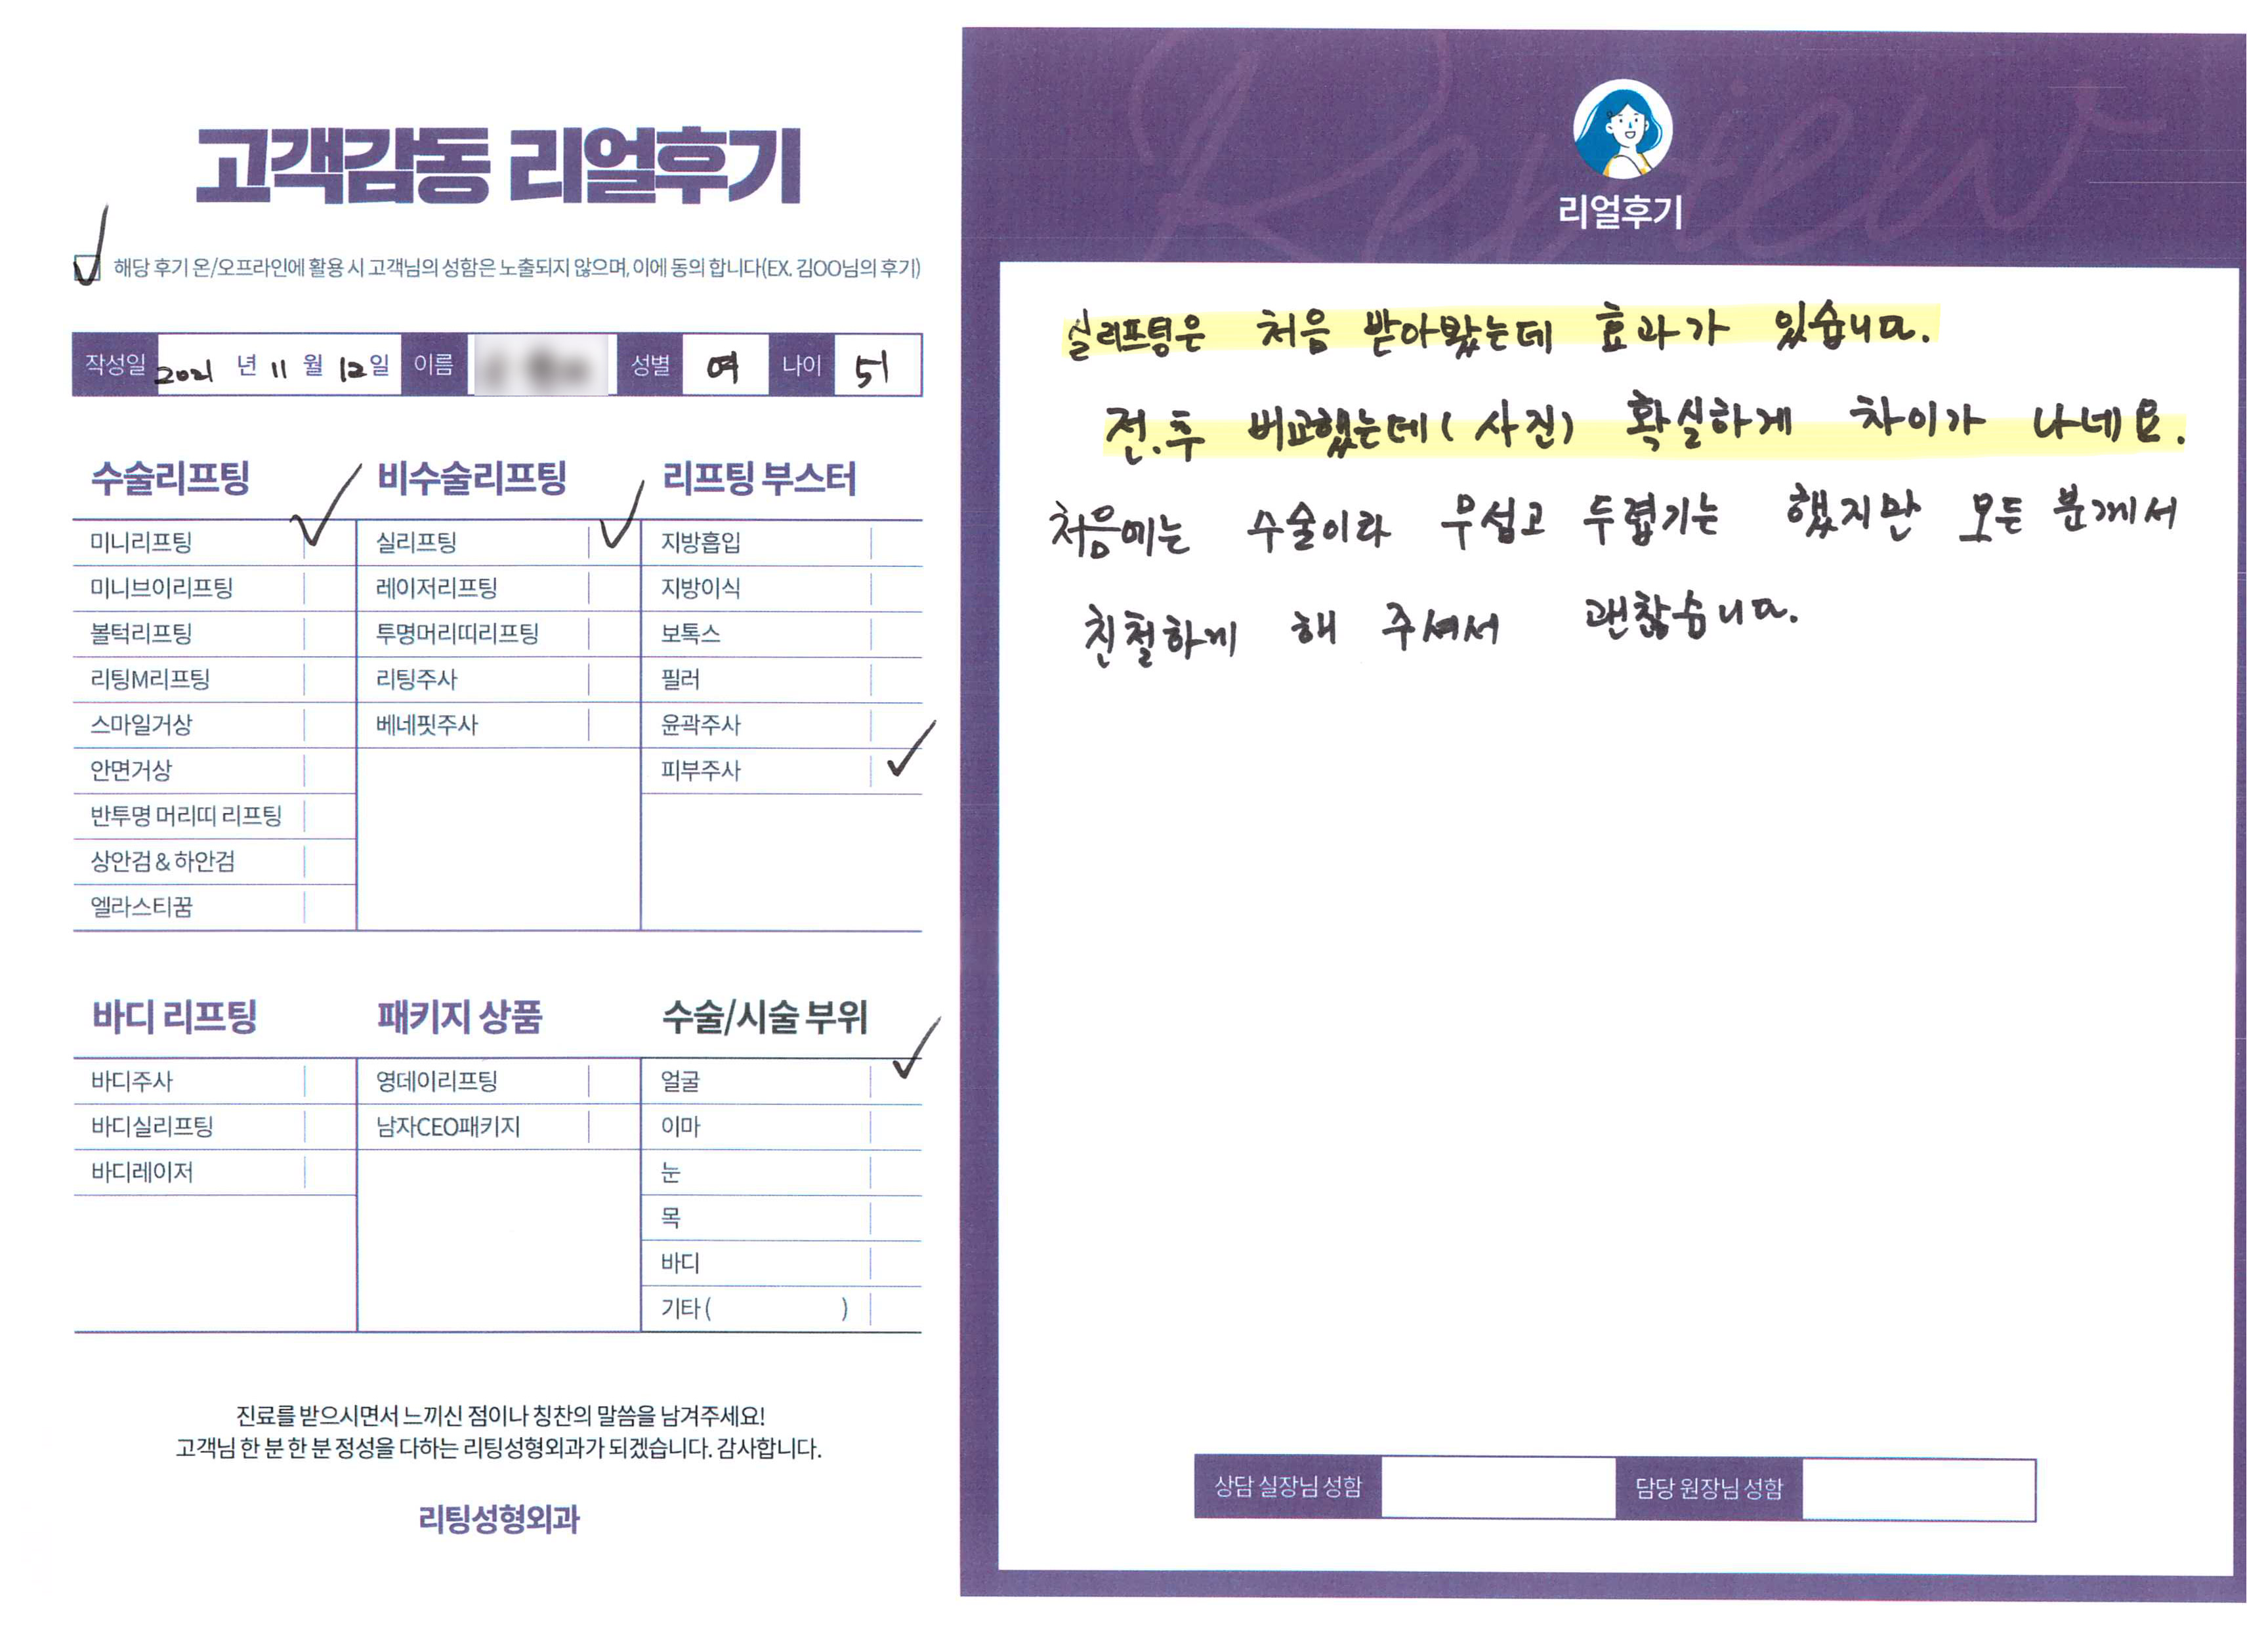 고객감동 리얼후기
해당 후기 온/오프라인에 활용 시 고객님의 성함은 노출되지 않으며, 이에 동의 합니다(EX. 김OO님의 후기)
작성일 2021 년 11 월 12 일 이름 성별 여 나이 51
수술리프팅
미니리프팅
미니브이리프팅
볼턱리프팅
리팅M리프팅
스마일거상
안면거상
반투명 머리띠 리프팅
상안검 & 하안검
엘라스티꿈
비수술리프팅
실리프팅
레이저리프팅
투명머리띠리프팅
리팅주사
베네핏주사
리프팅 부스터
지방흡입
지방이식
보톡스
필러
윤곽주사
피부주사
바디 리프팅
바디주사
바디실리프팅
바디레이저
패키지 상품
영데이리프팅
남자CEO패키지
수술/시술 부위
얼굴
이마
눈
목
바디
기타 ( )
진료를 받으시면서 느끼신 점이나 칭찬의 말씀을 남겨주세요!
고객님 한 분 한 분 정성을 다하는 리팅성형외과가 되겠습니다. 감사합니다.
리팅성형외과
Review
리얼후기
실리프팅은 처음 받아봤는데 효과가 있습니다.
전.후 비교했는데(사진) 확실하게 차이가 나네요.
처음에는 수술이라 무섭고 두렵기는 했지만 모든 분께서
친절하게 해 주셔서 괜찮습니다.
상담 실장님 성함 담당 원장님 성함